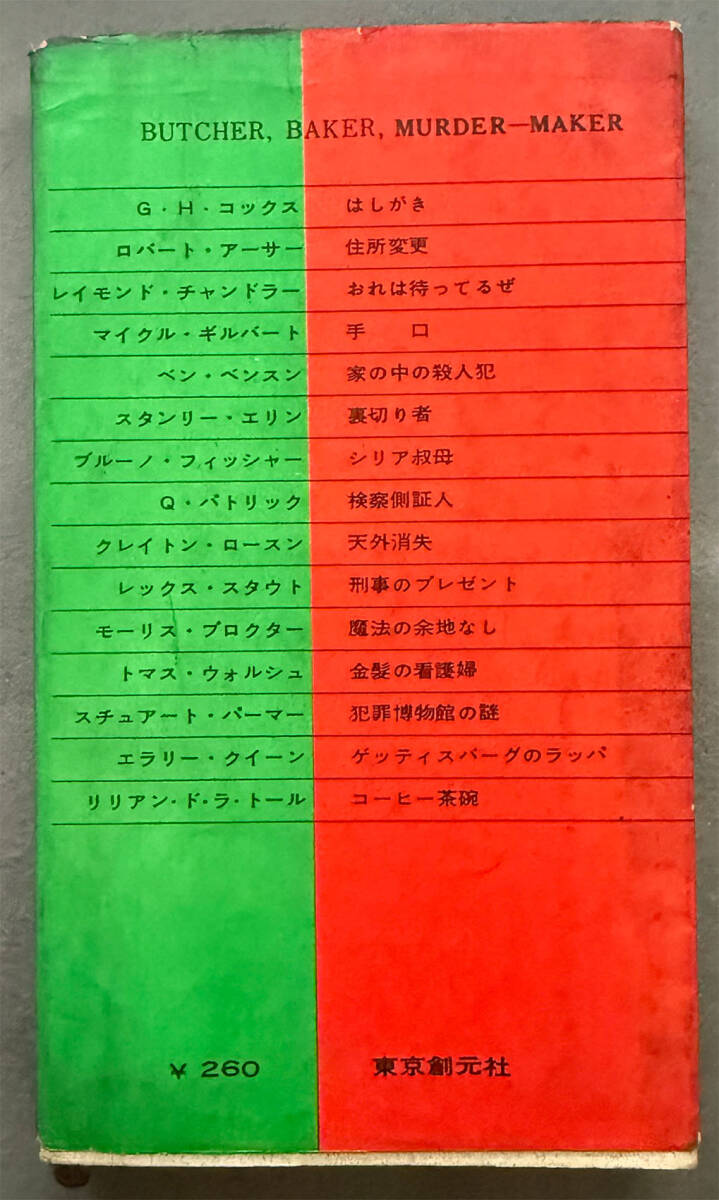 BUTCHER, BAKER, MURDER—MAKER
G・H・コックス はしがき
ロバート・アーサー 住所変更
レイモンド・チャンドラー おれは待ってるぜ
マイクル・ギルバート 手 口
ベン・ベンスン 家の中の殺人犯
スタンリー・エリン 裏切り者
ブルーノ・フィッシャー シリア叔母
Q・パトリック 検察側証人
クレイトン・ロースン 天外消失
レックス・スタウト 刑事のプレゼント
モーリス・プロクター 魔法の余地なし
トマス・ウォルシュ 金髪の看護婦
スチュアート・パーマー 犯罪博物館の謎
エラリー・クイーン ゲッティスバーグのラッパ
リリアン・ド・ラ・トール コーヒー茶碗
¥ 260 東京創元社